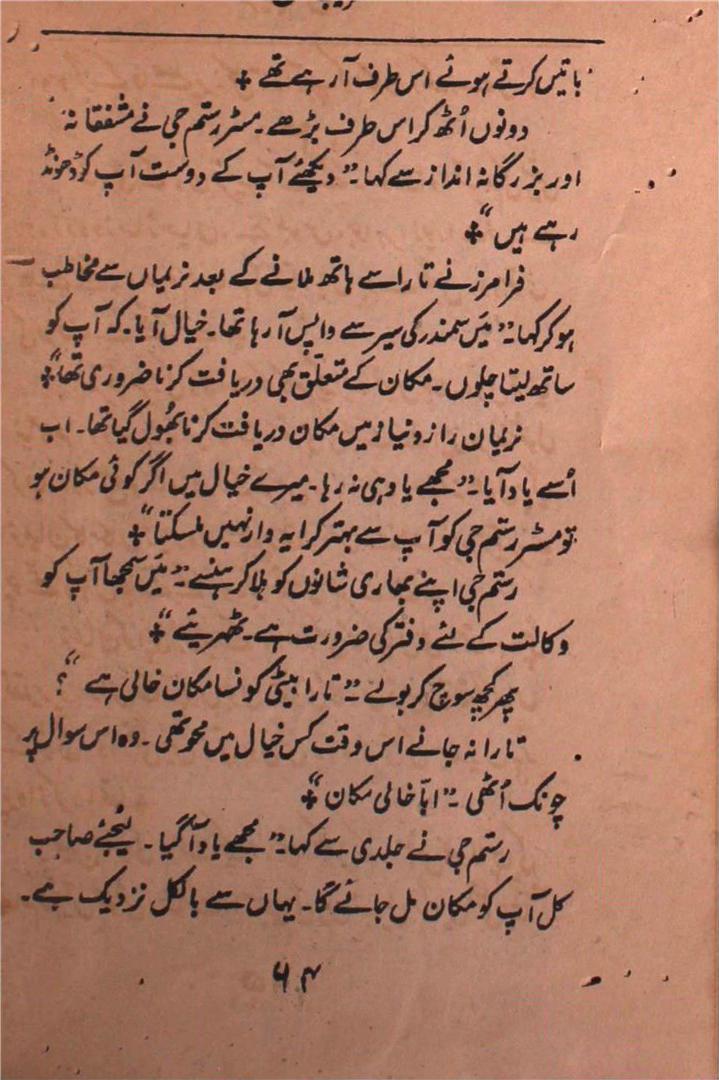 باتیں کرتے ہوئے اس طرف آ رہے تھے +
دونوں اُٹھ کر اس طرف بڑھے۔ مسٹر رستم جی نے مشفقانہ
اور بزرگانہ انداز سے کہا۔” دیکھئے آپ کے دوست آپ کو ڈھونڈ
رہے ہیں “+
فرامرز نے تارا سے ہاتھ ملانے کے بعد نریماں سے مخاطب
ہو کر کہا۔” مَیں سمندر کی سیر سے واپس آ رہا تھا۔ خیال آیا۔ کہ آپ کو
ساتھ لیتا چلوں۔ مکان کے متعلّق بھی دریافت کرنا ضروری تھا“+
نریمان راز و نیاز میں مکان دریافت کرنا بھُول گیا تھا۔ اب
اُسے یاد آیا۔” مجھے یاد ہی نہ رہا۔ میرے خیال میں اگر کوئی مکان ہو
تو مسٹر رستم جی کو آپ سے بہتر کرایہ دار نہیں مل سکتا“+
رستم جی اپنے بھاری شانوں کو ہلا کر ہنسے۔” مَیں سمجھا آپ کو
وکالت کے لئے دفتر کی ضرورت ہے۔ ٹھہریئے “+
پھر کچھ سوچ کر بولے۔” تارا بیٹی کونسا مکان خالی ہے “؟
تارا نہ جانے اس وقت کس خیال میں محو تھی۔ وہ اس سوال پر
چونک اُٹھی۔” ابّا خالی مکان “+
رستم جی نے جلدی سے کہا۔” مجھے یاد آ گیا۔ لیُجئے صاحب
کل آپ کو مکان مل جائے گا۔ یہاں سے بالکل نزدیک ہے۔
۶۴